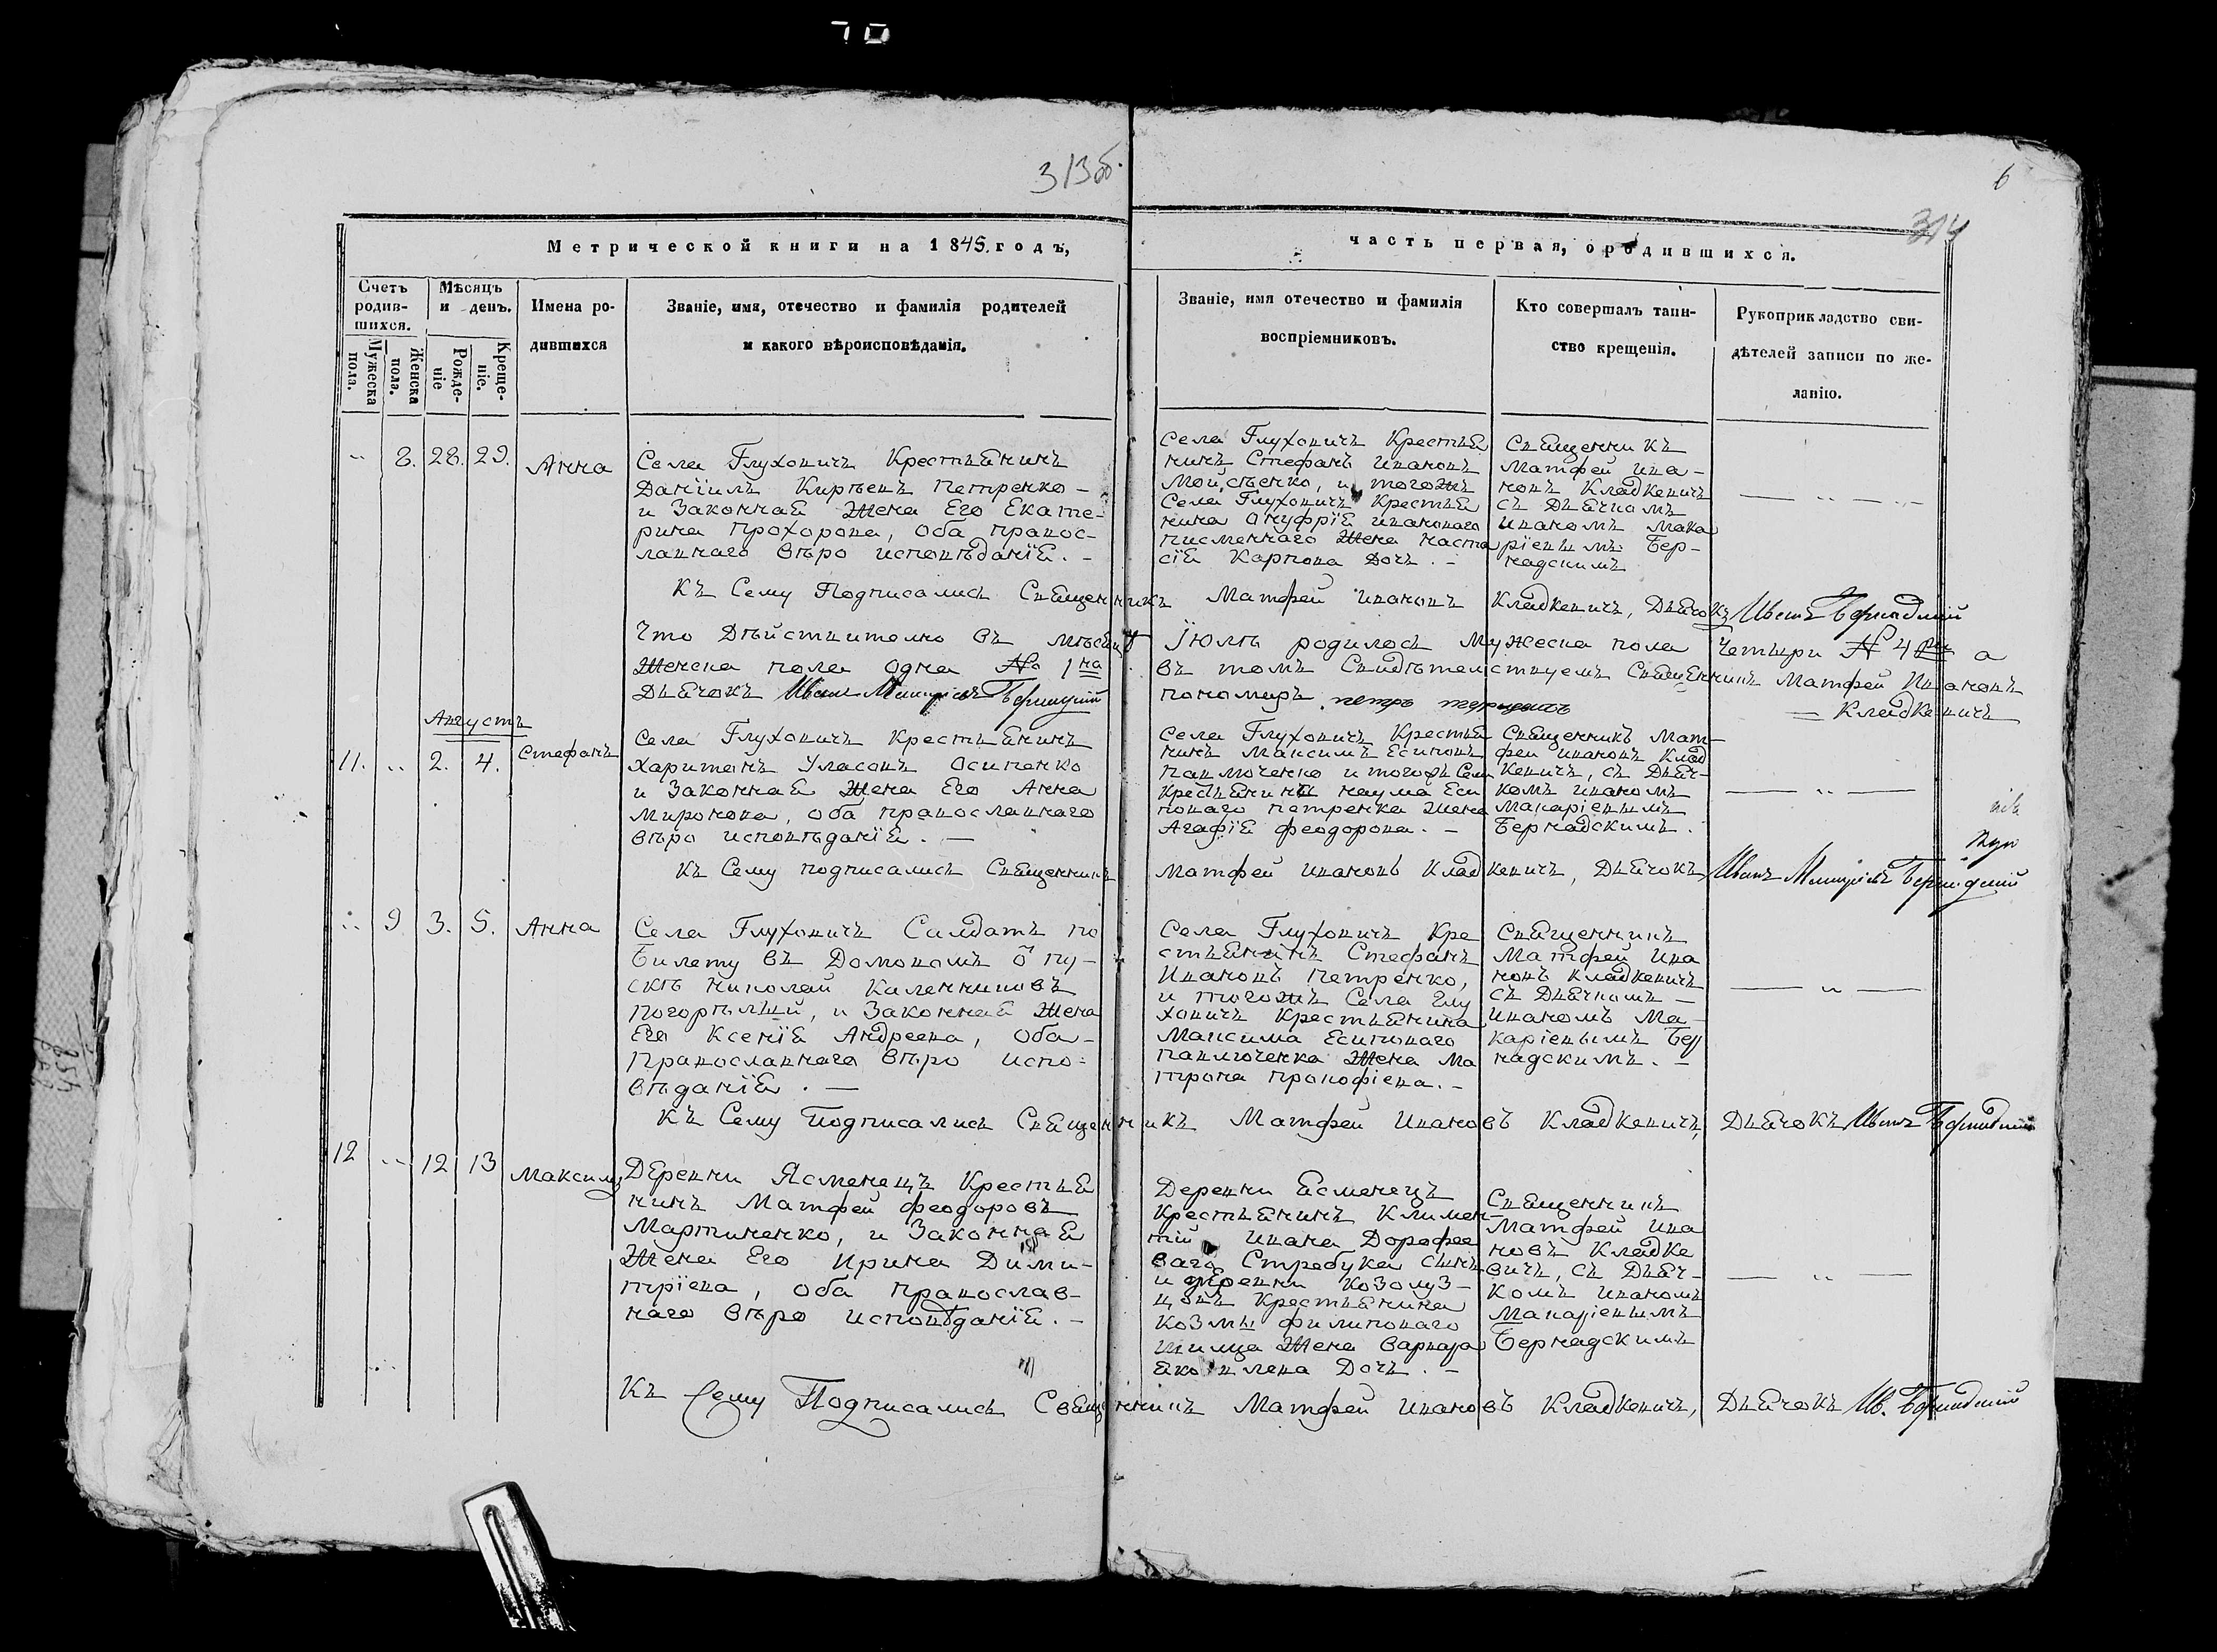 313об.
6
314
Метрической книги на 1845. годъ,
часть первая, о родившихся.
Счетъ родив-
шихся.
Мужеска пола.
Женска пола.
Мѣсяцъ
и день.
Рожде-
ніе
Креще-
ніе.
Имена ро-
дившихся
Званіе, имя, отечество и фамилія родителей
и какого вѣроисповѣданія.
Званіе, имя отечество и фамилія
воспріемниковъ.
Кто совершалъ таин-
ство крещенія.
Рукоприкладство сви-
дѣтелей записи по же-
ланію.
8. 28. 29. Анна
Села Глуховичъ Крестьянинъ
Даніилъ Кирѣевъ Петренко -
и Законная Жена Его Екате-
рина Прохорова, оба правос-
лавнаго вѣро исповѣданія. -
Села Глуховичъ Крестья
нинъ Стефанъ Ивановъ
Мойсѣенко, и тогожъ
Села Глуховичъ Крестья
нина Онуфрія Ивановаго
Писменнаго Жена Наста
сія Карпова Дочь. -
Священникъ
Матфей Ива-
новъ Кладкевичъ
съ Дьячкомъ
Иваномъ Мака
ріевымъ Бер-
надскимъ
Къ Сему Подписались Священникъ Матфей Ивановъ Кладкевичъ, Дьячокъ Иванъ Бернадскій
Что Дѣйствително въ мѣсяцѣ Іюлѣ родилось Мужеска пола Четыри № 4 а
Женска пола одна № 1на въ томъ Свидѣтелствуемъ Священникъ Матфей Ивановъ
Кладкевичъ
Дьячокъ Иванъ Бернадскій пономарь Петръ
Августъ
11. 2. 4. Стефанъ
Села Глуховичъ Крестьянинъ
Хаританъ Уласовъ Осипенко
и Законная Жена Его Анна
Миронова, оба православнаго
вѣро исповѣданія. -
Села Глуховичъ Крестья
нинъ Максимъ Есиповъ
Павлюченко и тогожъ Села
Крестьянина Наума Еси
поваго Петренка Жена
Агафія Феодорова. -
Священникъ Мат-
фей Ивановъ Клад
кевичъ, съ Дьяч-
комъ Иваномъ
Макаріевымъ
Бернадскимъ.
Къ Сему подписались Священникъ Матфей Ивановъ Кладкевичъ, Дьячокъ Иванъ Бернадскій
9 3. 5. Анна
Села Глуховичъ Салдатъ по
билету въ Домовомъ отпу-
скѣ Николай Каленниковъ
Погорѣлый, и Законная Жена
Его Ксенія Андреева, оба -
Православнаго вѣро испо-
вѣданія. -
Села Глуховичъ Кре
стьянинъ Стефанъ
Ивановъ Петренко,
и тогожъ Села Глу
ховичъ Крестьянина
Максима Есиповаго
Павлюченка Жена Ма
трона Прокофіева. -
Священникъ
Матфей Ива
новъ Кладкевичъ
съ Дьячкомъ -
Иваномъ Ма-
каріевымъ Бер
надскимъ. -
Къ Сему Подписались Священникъ Матфей Ивановъ Кладкевичъ, Дьячокъ Иванъ Бернадскій
12 12 13 Максимъ
Деревни Ясменецъ Крестья
нинъ Матфей Феодоровъ
Мартиненко, и Законная
Жена Его Ирина Дими-
тріева, оба православ-
наго вѣро исповѣданія. -
Деревни Ясменецъ
Крестьянинъ Климен-
тій Ивана Дорофее
ваго Стребука Сынъ
и деревни Козолуз-
цовъ Крестьянина
Козмы Филиповаго
Шилца Жена Варвара
Яковлева Дочь. -
Священникъ
Матфей Ива
новъ Кладке
вичъ, съ Дьяч-
комъ Иваномъ
Макаріевымъ
Бернадскимъ
Къ Сему Подписались Священникъ Матфей Ивановъ Кладкевичъ, Дьячокъ Ив. Бернадскій